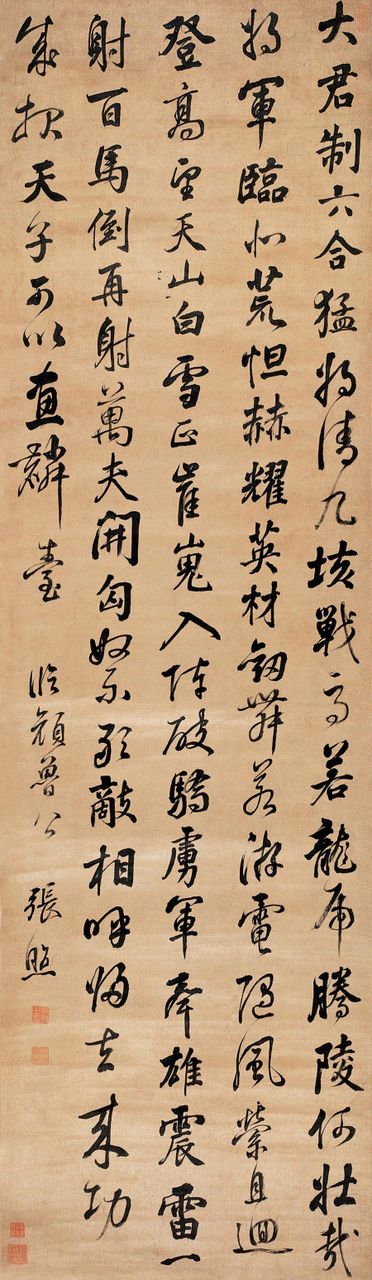 大君制六合猛将清九垓戰馬若龍虎騰陵何壯哉
将軍臨北荒怛赫耀英材劒舞若游電随風縈且迴
登高望天山白雪正崔嵬入陣破驕虜軍聲雄震雷一
射百馬倒再射萬夫開匈奴不敢敵相呼歸去来功
成報天子可以畫麟臺 臨顏魯公 張照